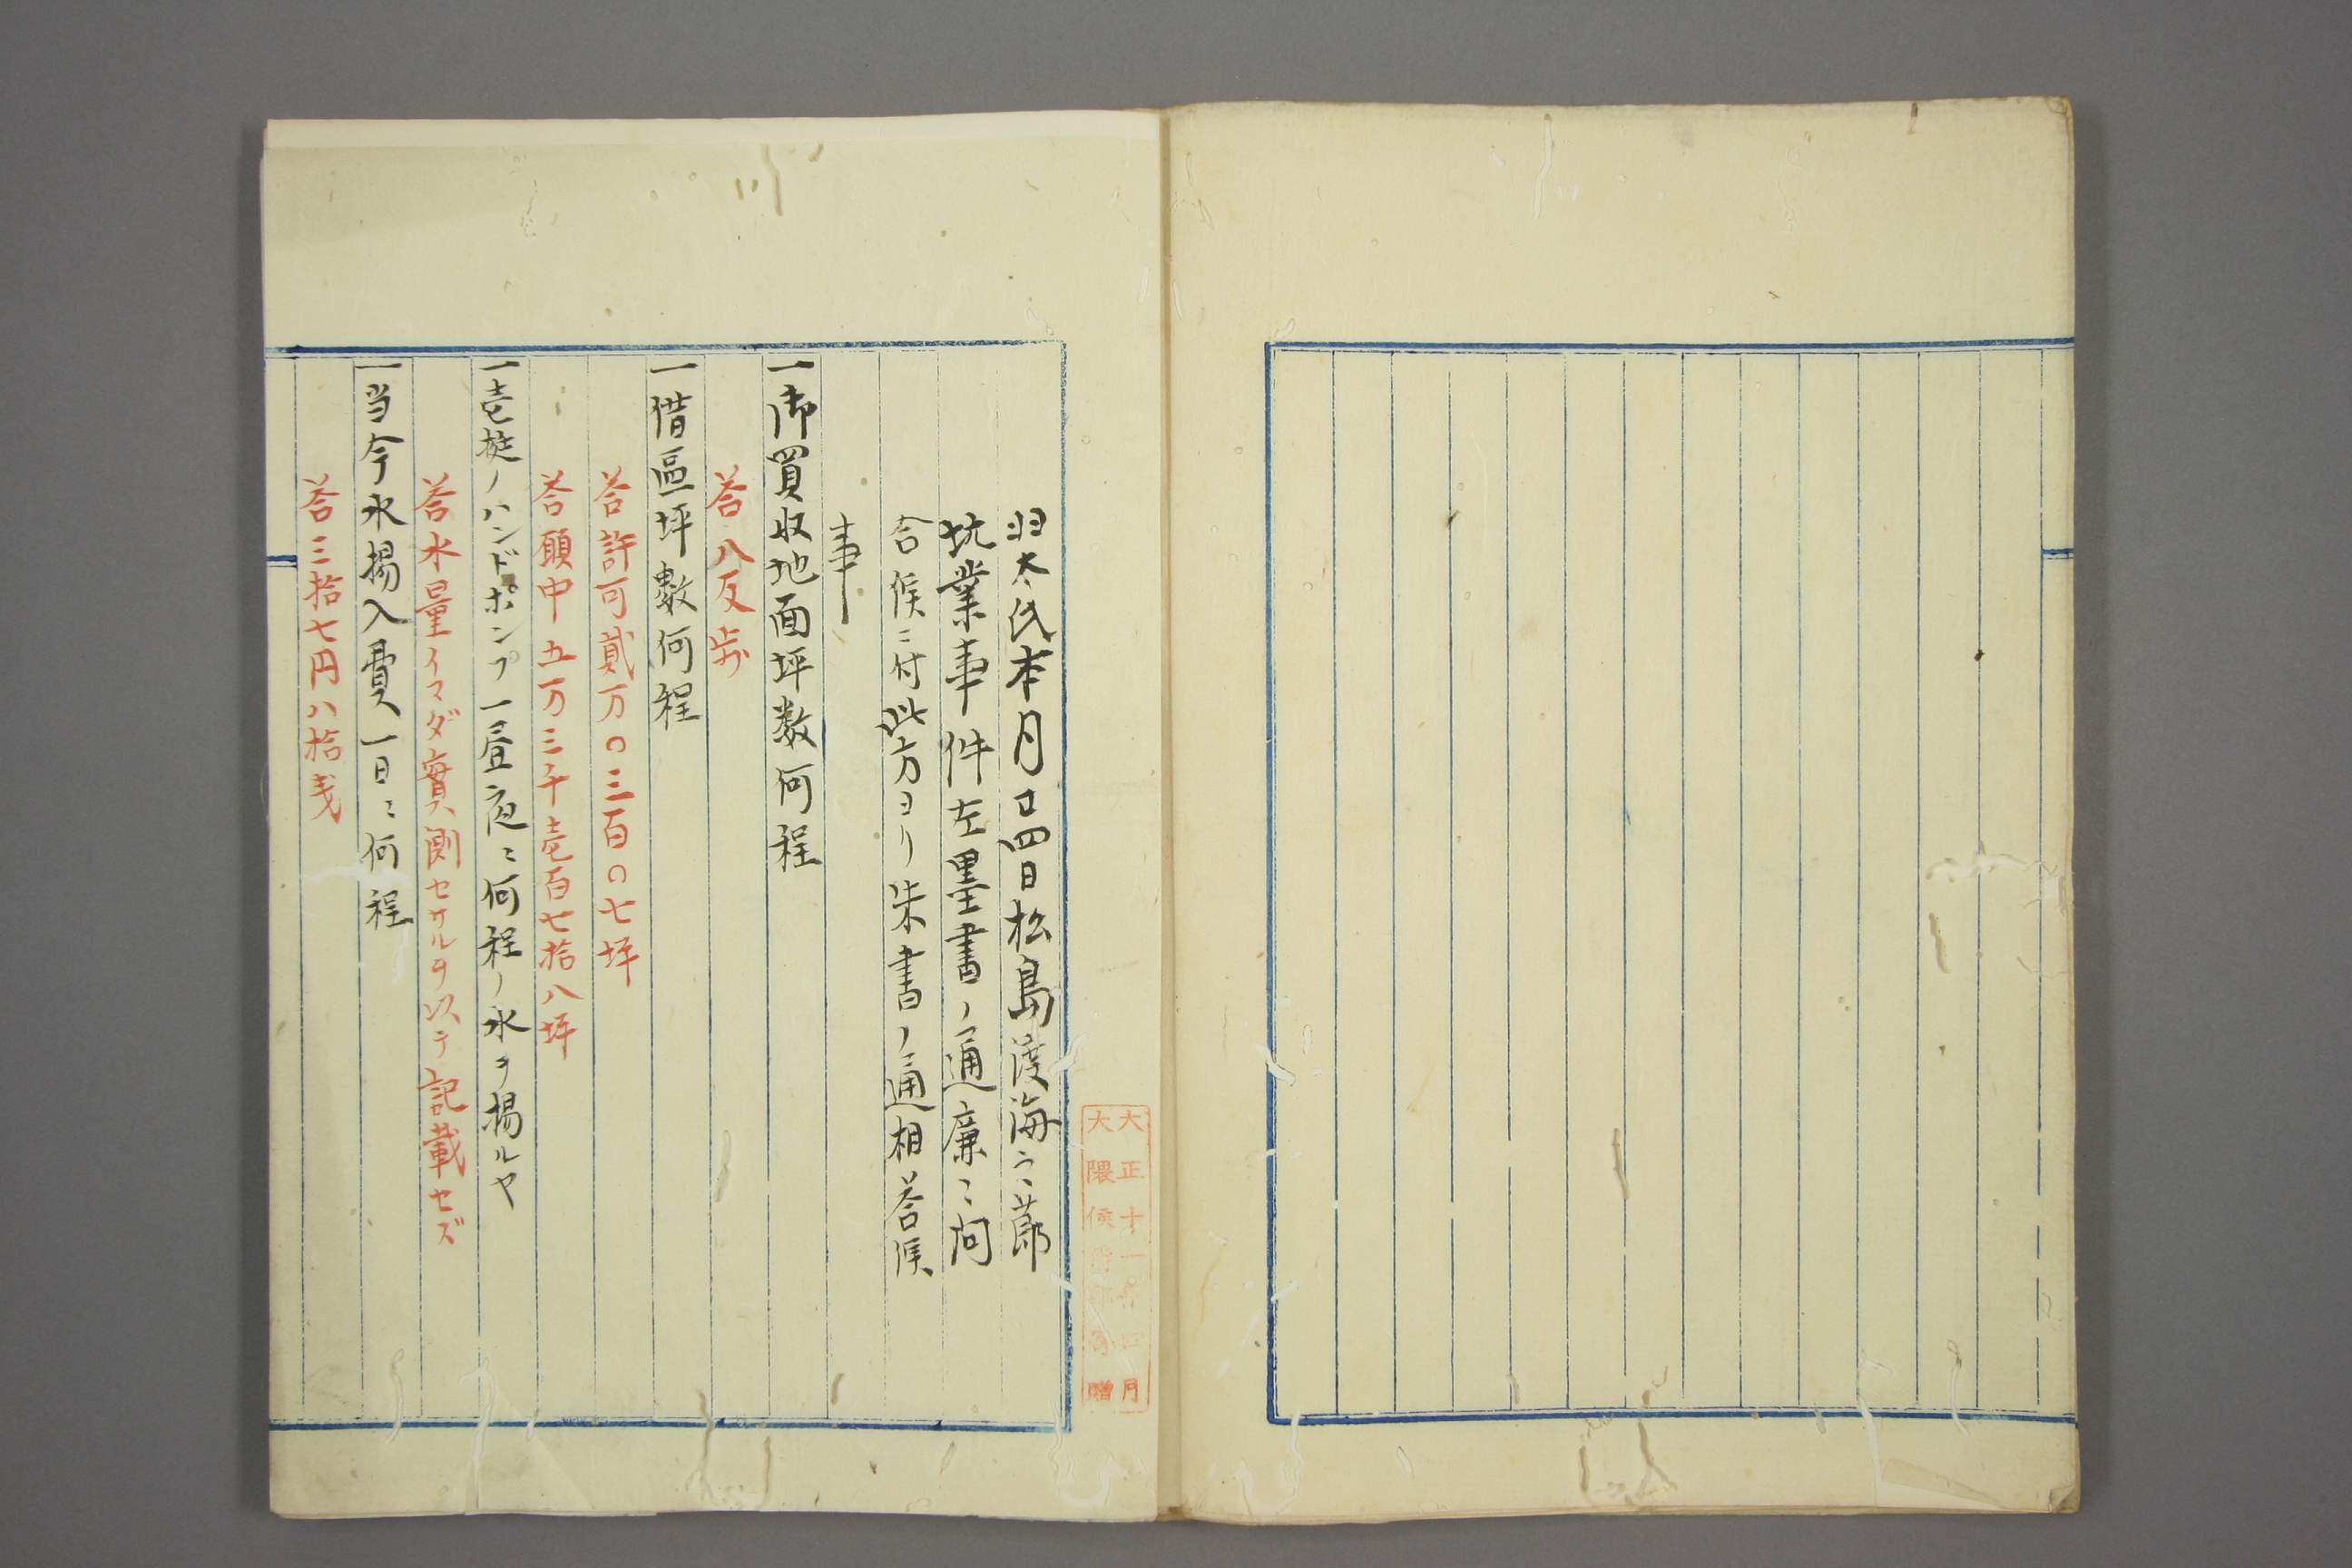 氏本月廿四日松島渡海之節
坑業事件左墨書ノ通廉ニ問
合候ニ付此方ヨリ朱書ノ通相答候
事
一御買収地面坪数何程
答八反歩
一借區坪數何程
答許可貳万〇三百〇七坪
答願中五万三千壱百七拾八坪
一壱挺ノハンドポンプ一昼夜ニ何程ノ水ヲ揚ルヤ
答水量イマダ實測セサルヲ以テ記載セズ
一当今水揚入費一日ニ何程
答三拾七円八拾戋
大正十一年四月
大隈侯爵邸寄贈